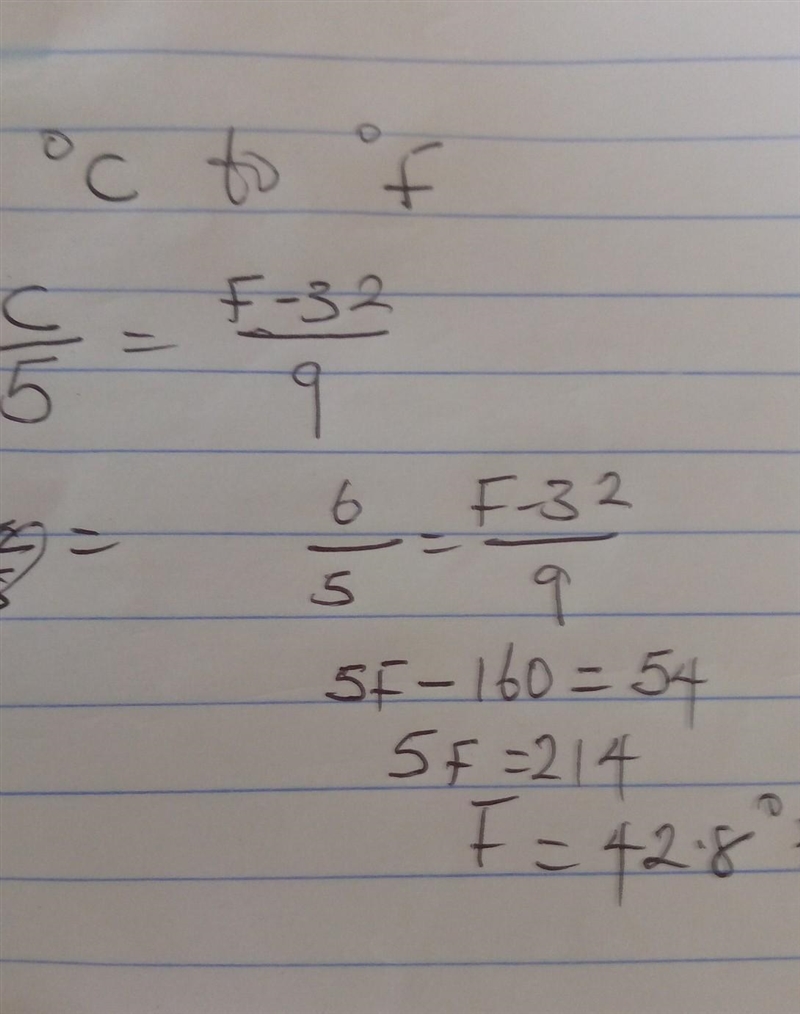 °C to °F
C/5 = F-32/9
= 6/5 = F-32/9
5F-160=54
5F=214
F=42.8°